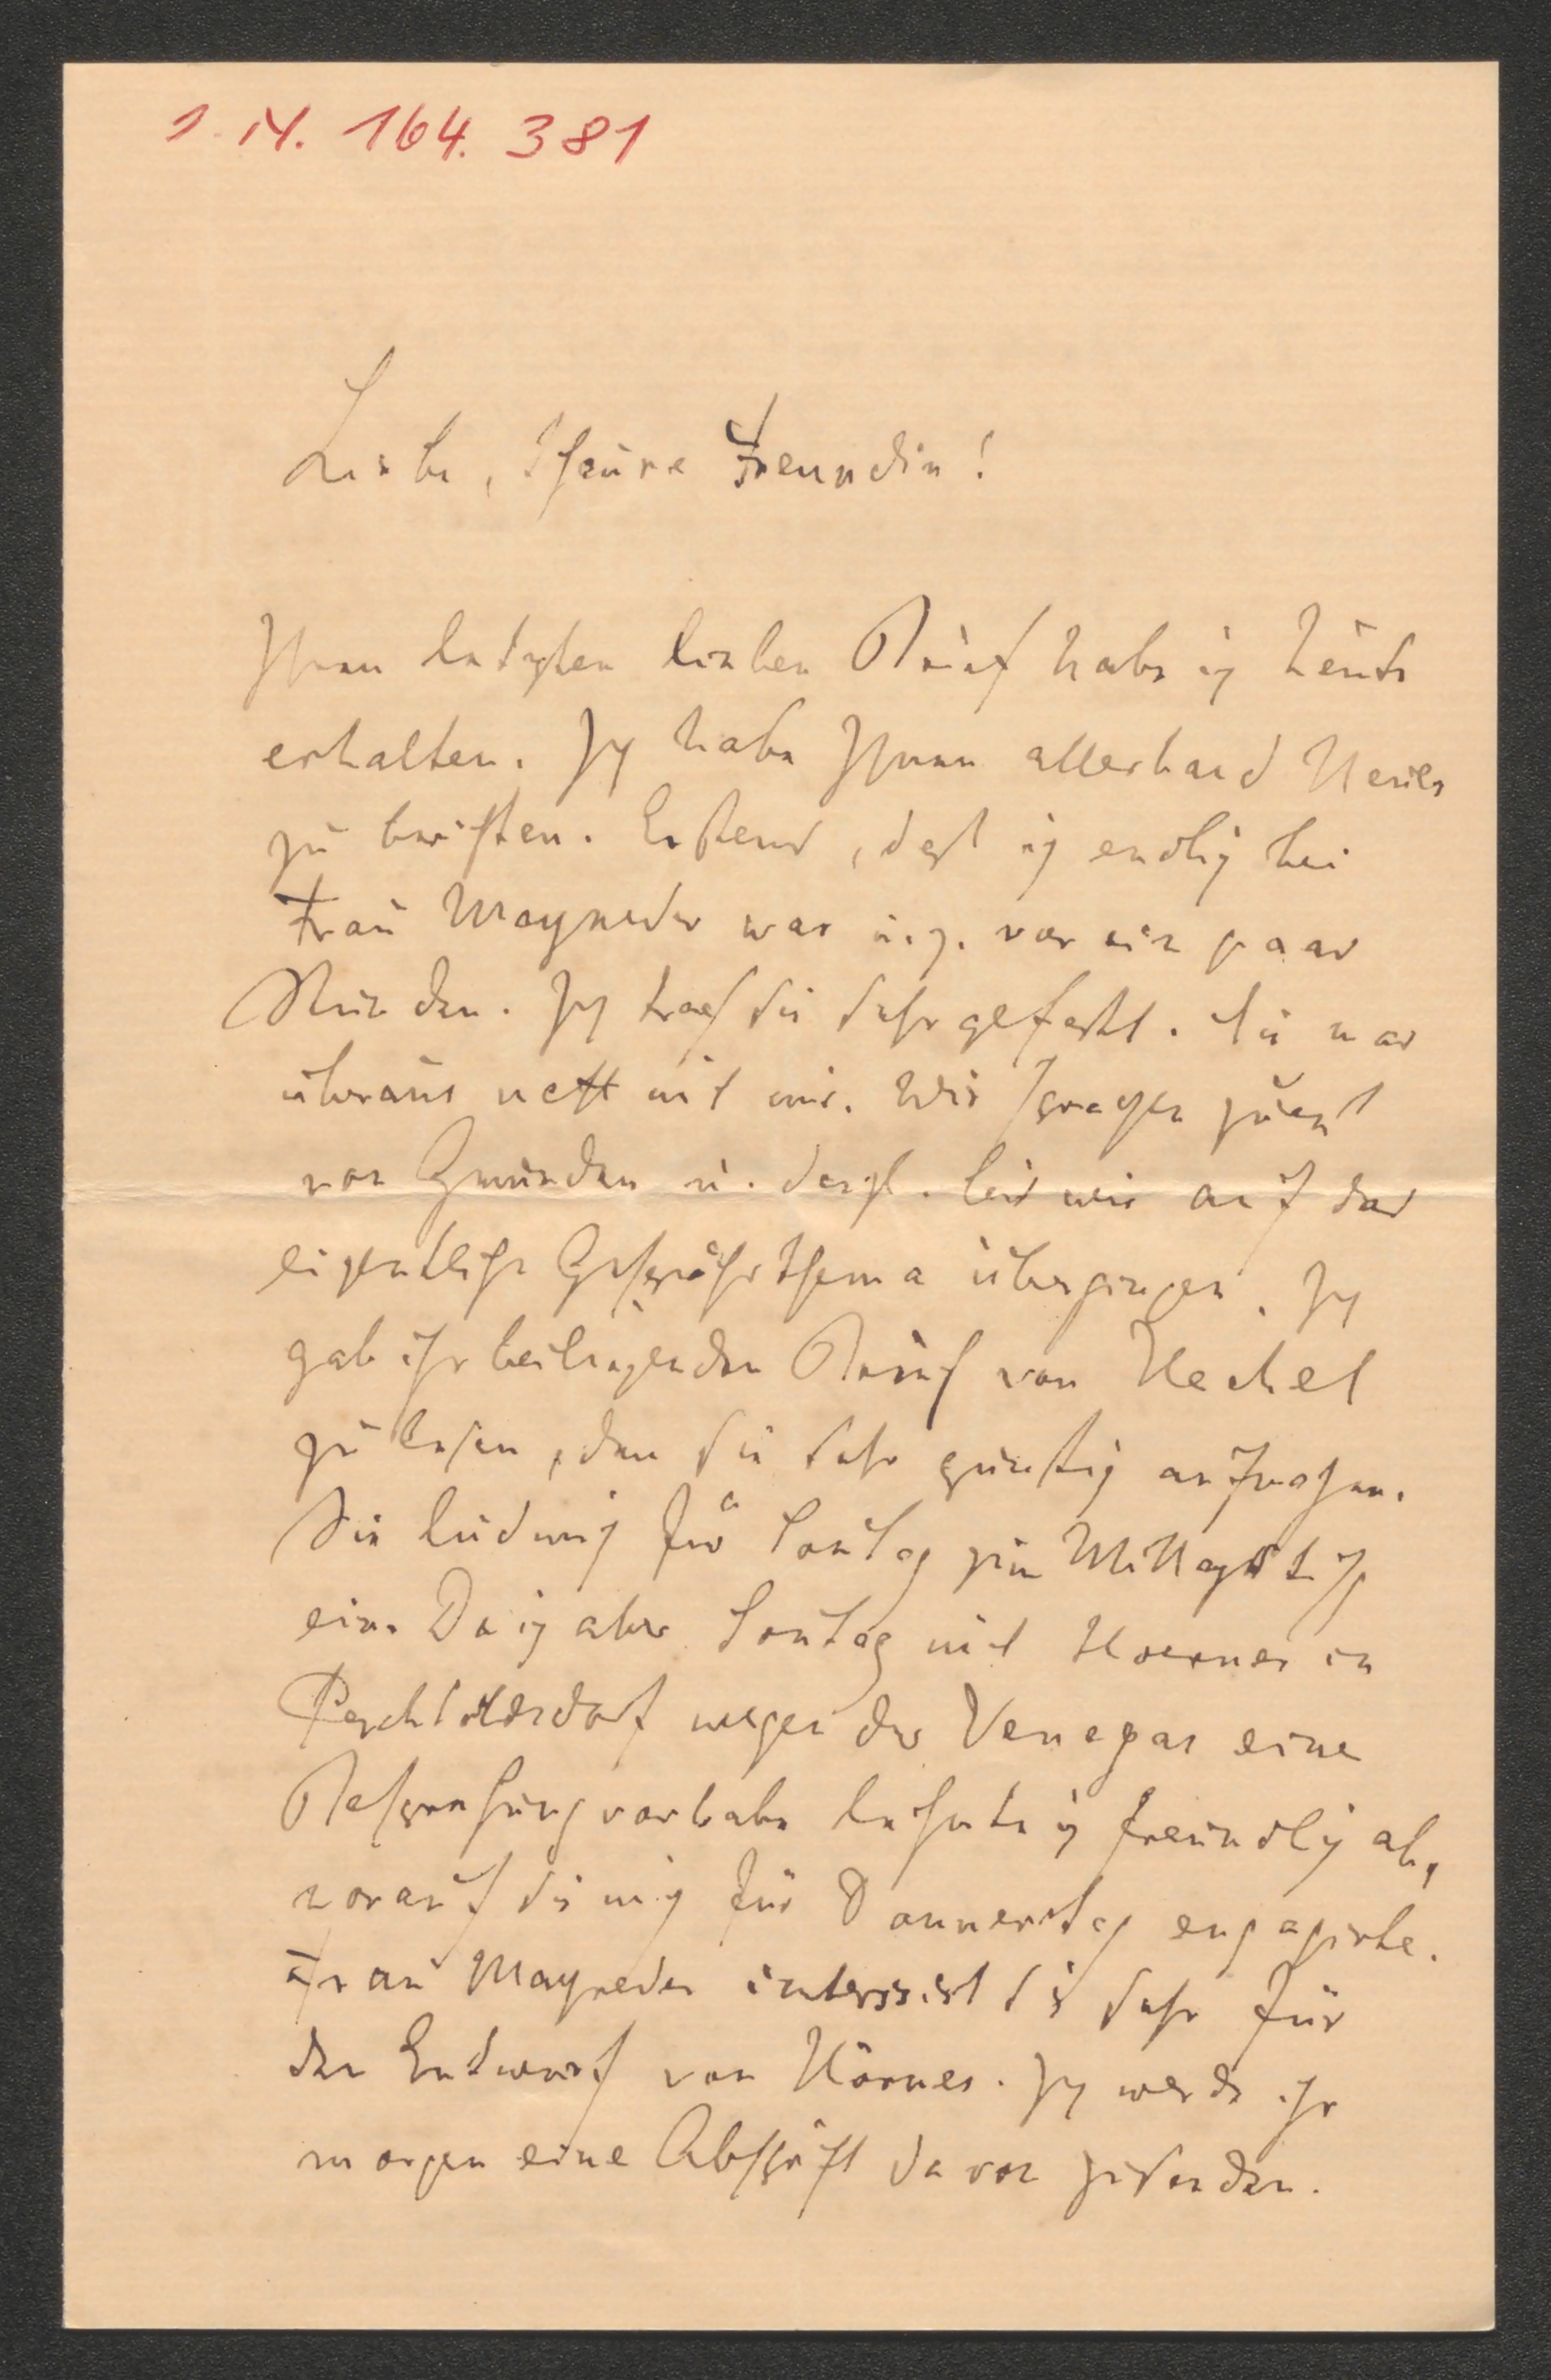 I. N. 164. 381
Liebe, theure Freundin!
Ihren letzten lieben Brief habe ich heute
erhalten. Ich habe Ihnen allerhand Neues
zu berichten. Erstens, daß ich endlich bei
Frau Mayreder war u. z. vor ein paar
Stunden. Ich traf sie sehr gefaßt. Sie war
überaus nett mit mir. Wir sprachen zuerst
von Gmunden u. dergl. bis wir auf das
eigentliche Gesprächsthema übergingen. Ich
gab ihr beiliegenden Brief von Heckel
zu lesen, den sie sehr günstig aufnahm.
Sie lud mich für Sontag zum Mittagstisch
ein. Da ich aber Sontag mit Hoernes in
Perchtoldsdorf wegen der Venegas eine
Besprechung vorhabe lehnte ich freundlich ab,
worauf sie mich für Donnerstag engagirte.
Frau Mayreder interssirt sich sehr für
den Entwurf von Hörnes. Ich werde ihr
morgen eine Abschrift davon zusenden.